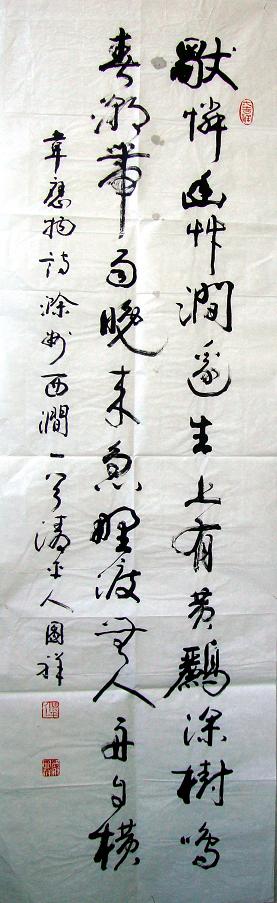 獨憐幽艸澗邊生上有黃鸝深樹鳴
春潮帶雨晚來急野渡無人舟自橫
韋應物詩滁州西澗一首 人國祥